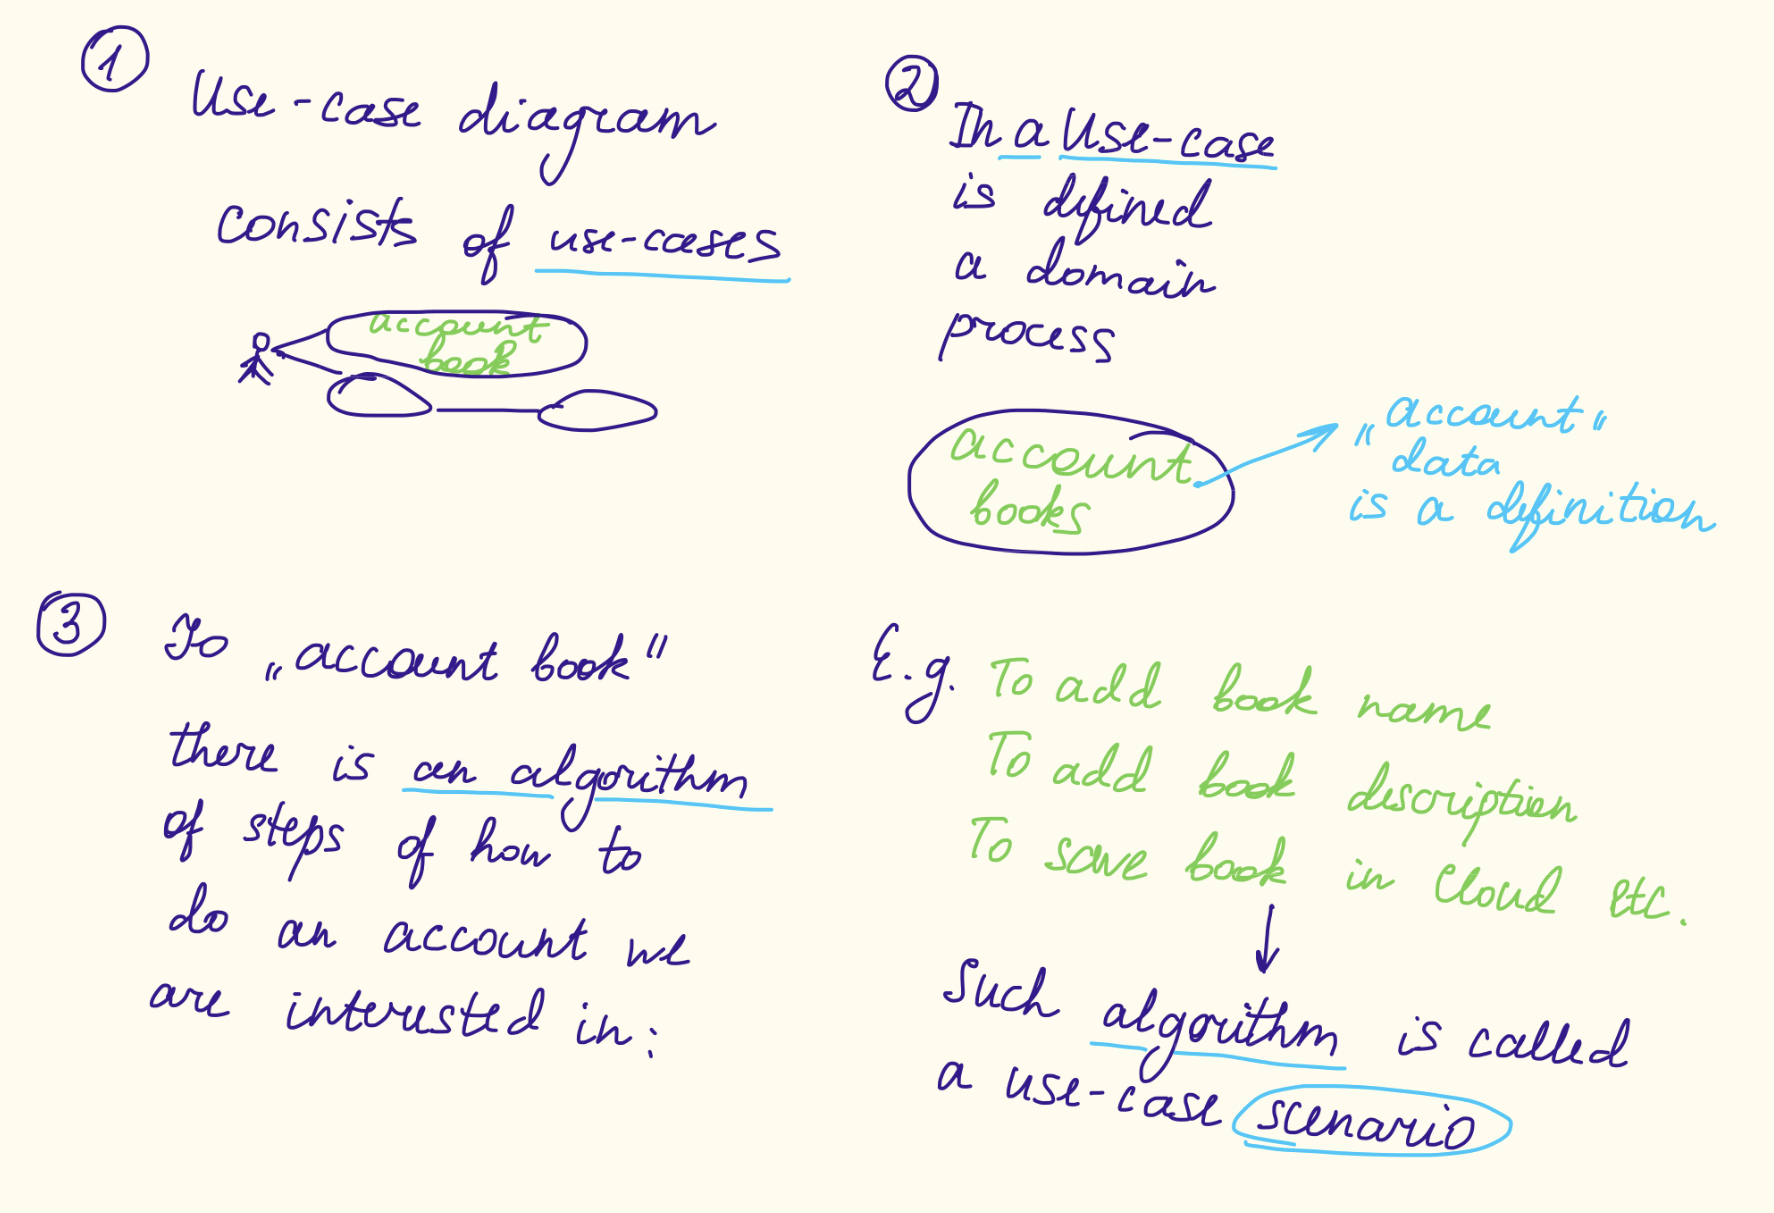 1
Use-case diagram
consists of use-cases
account
book
2
In a Use-case
is defined
a domain
process
account
books
„account“
data
is a definition
3
To „account book“
there is an algorithm
of steps of how to
do an account we
are interested in:
E.g. To add book name
To add book description
To save book in Cloud etc.
Such algorithm is called
a use-case scenario